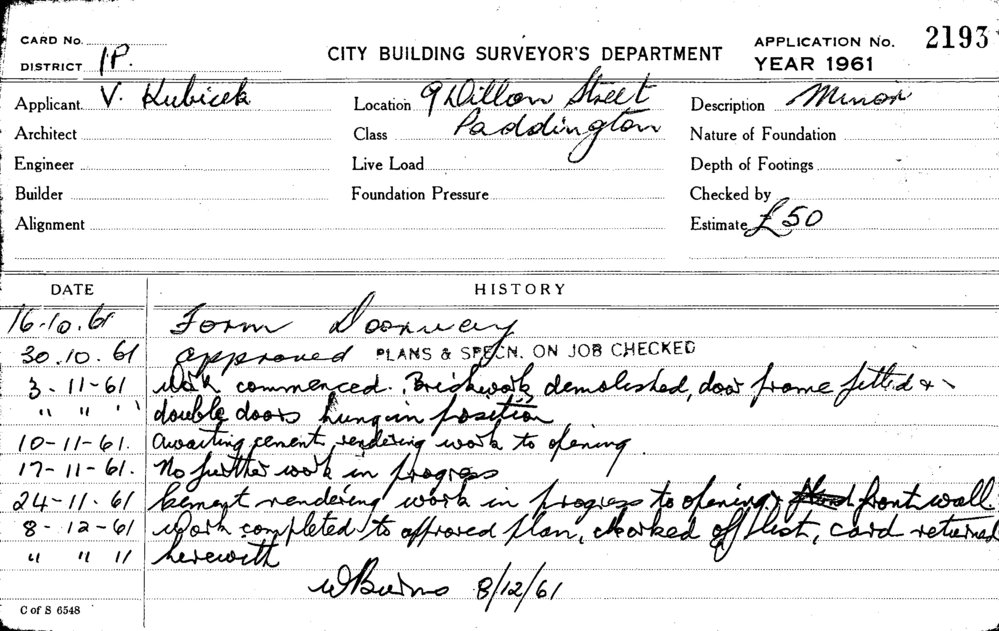 CARD No.
DISTRICT 1P.
CITY BUILDING SURVEYOR'S DEPARTMENT
APPLICATION No. 2193
YEAR 1961
Applicant V. Kubicek
Location 9 Dillon Street
Paddington
Description Minor
Architect
Class
Nature of Foundation
Engineer
Live Load
Depth of Footings
Builder
Foundation Pressure
Checked by
Alignment
Estimate £50
DATE HISTORY
16.10.61 Form Doorway
30.10.61 approved PLANS & SPECN. ON JOB CHECKED
3-11-61 Work commenced. Brickwork demolished, door frame fitted &
" " " double doors hung in position
10-11-61. Awaiting cement rendering work to opening.
17-11-61. No further work in progress
24-11-61 Cement rendering work in progress to opening & front wall.
8-12-61 Work completed to approved plan, marked off list, card returned
" " " herewith
WBurns 8/12/61
C of S 6548